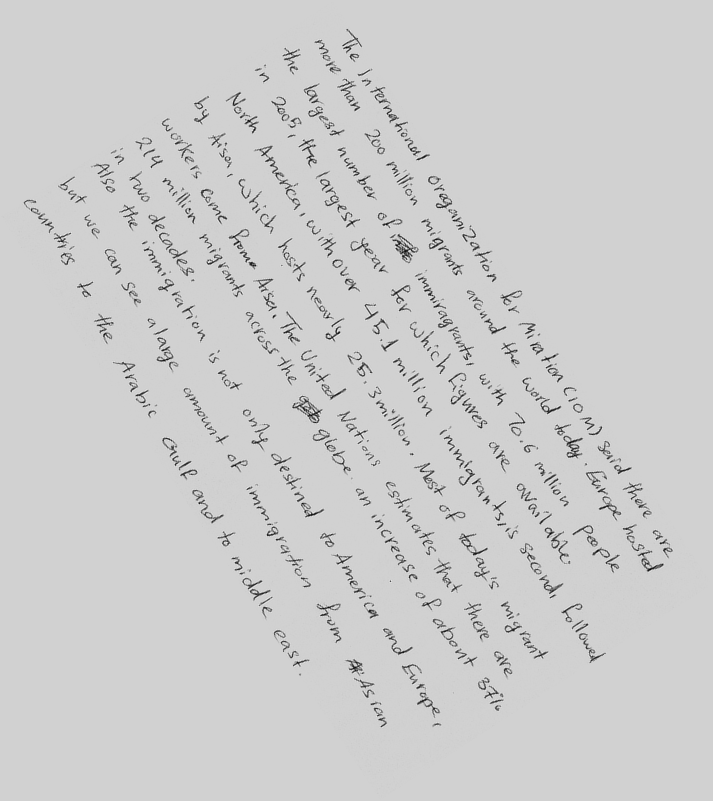 The International oragaization for Miration (IOM) said there are
more than 200 million migrants around the world today. Europe hosted
the largest number of immiragrants, with 70.6 million people
in 2005, the largest year for which figures are available.
North America, with over 45.1 million immigrants, is second, followed
by Aisa, which hosts nearly 25.3 million. Most of today's migrant
workers come frome Aisa. The United Nations estimates that there are
214 million migrants across the globe. an increase of about 37%
in two decades.
Also the immigration is not only destined to America and Europe,
but we can see a large amount of immigration from Asian
countries to the Arabic Gulf and to middle east.